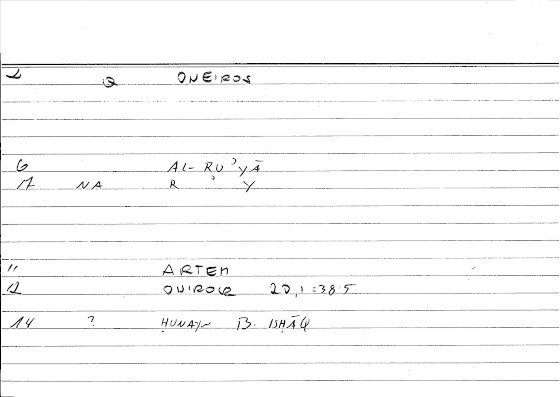 2 Q ONEIROS
6 AL-RUʾYĀ
17 NA R ʾ Y
11 ARTEM
12 ONIROCR 20,1:38.5
14 ? ḤUNAYN B. ISḤĀQ